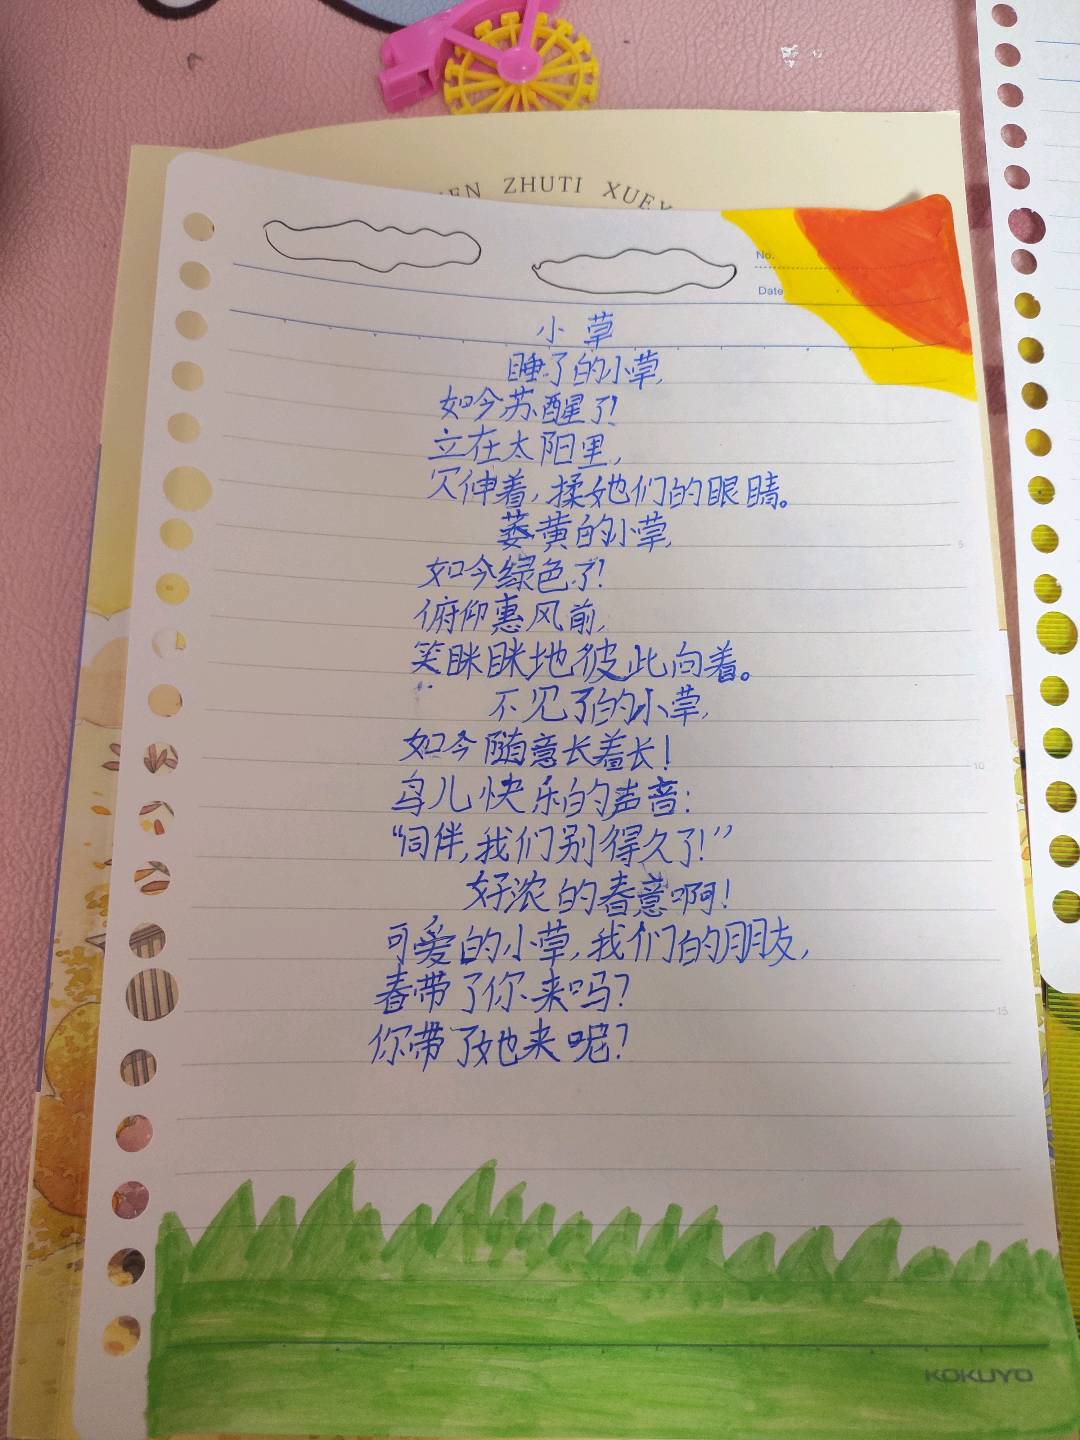 ZHUTI XUEX
No.
Date
小草
睡了的小草,
如今苏醒了!
立在太阳里,
欠伸着,揉她们的眼睛。
萎黄的小草,
如今绿色了!
俯仰惠风前,
笑眯眯地彼此向着。
不见了的小草,
如今随意长着长!
鸟儿快乐的声音:
“同伴,我们别得久了!”
好浓的春意啊!
可爱的小草,我们的朋友,
春带了你来吗?
你带了她来呢?
5
10
15
KOKUYO